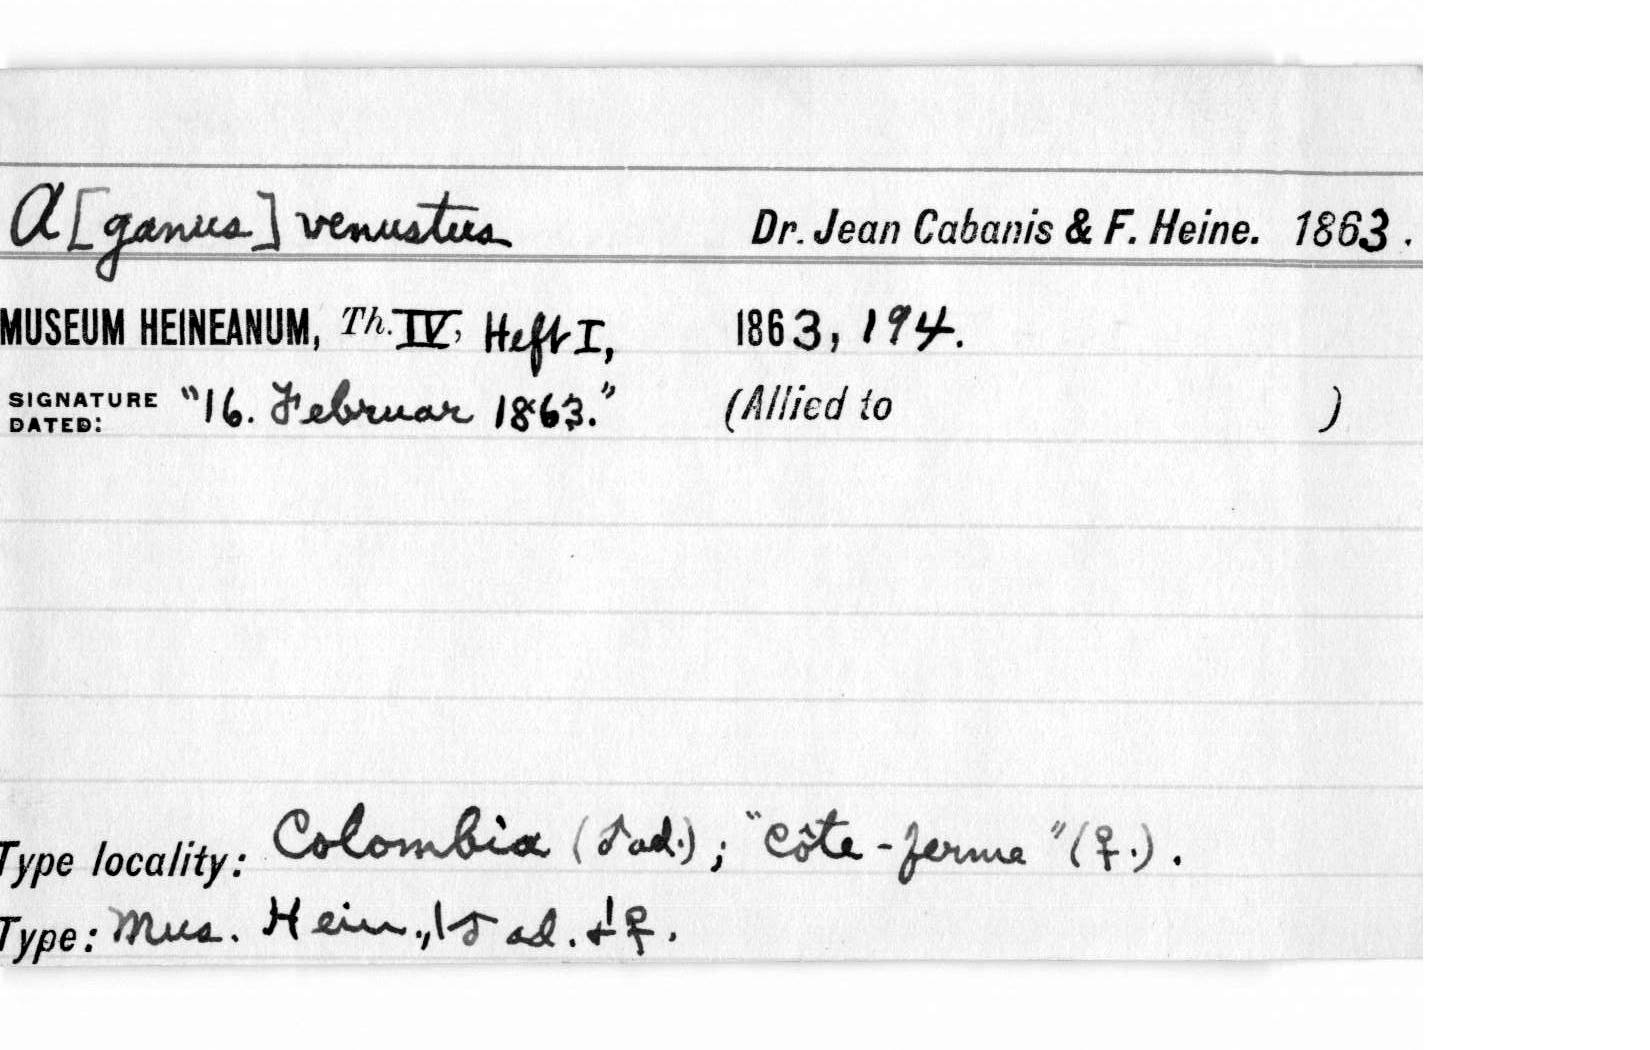 A[ganus] venustus Dr. Jean Cabanis & F. Heine. 1863.
MUSEUM HEINEANUM, Th. IV, Heft I, 1863, 194.
SIGNATURE DATED: "16. Februar 1863." (Allied to )
Type locality: Colombia (♂ ad.); "Côte-ferme" (♀.).
Type: Mus. Hein., 1 ♂ ad. + 1 ♀.